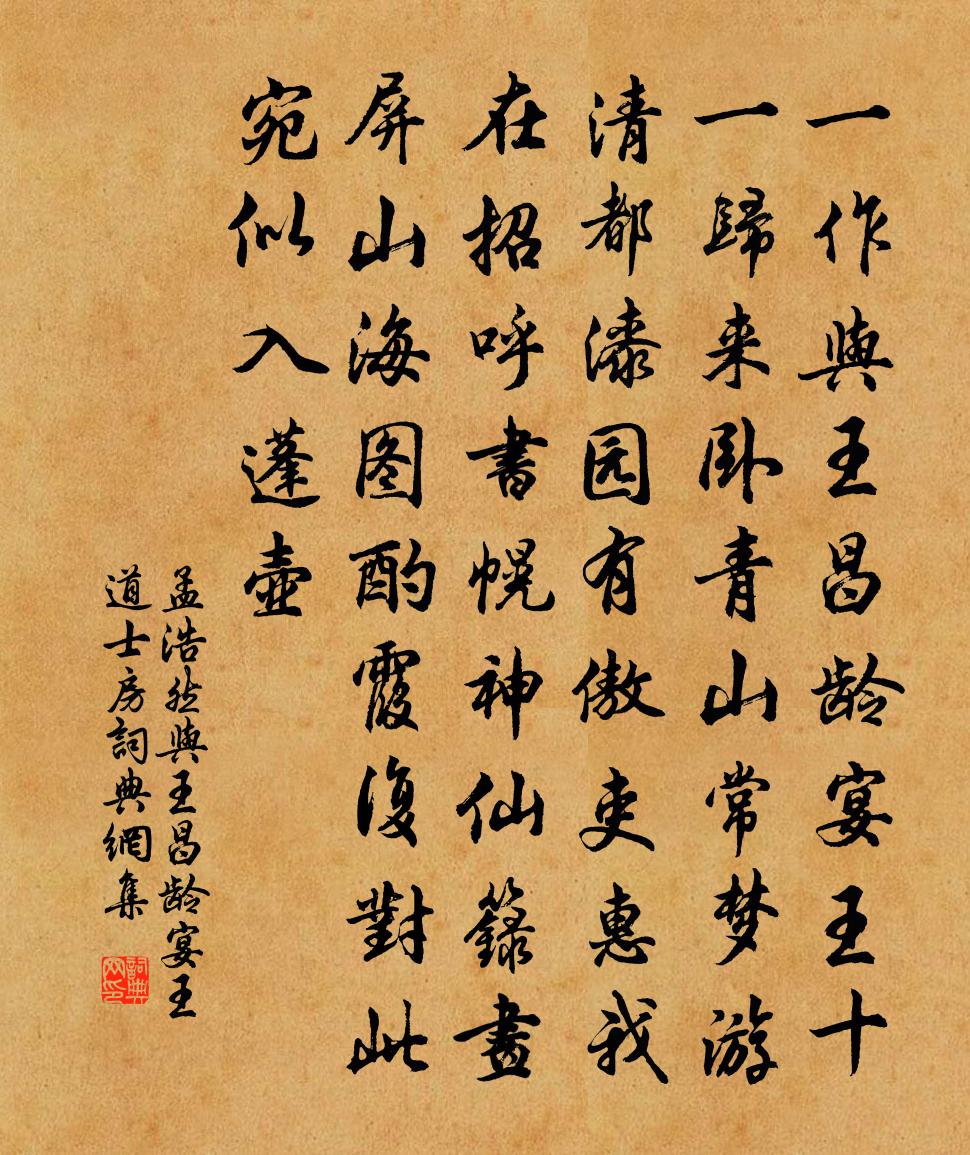 一作與王昌龄宴王十
一歸来卧青山常梦游
清都漆园有傲吏惠我
在招呼書幌神仙籙畫
屏山海图酌霞復對此
宛似入蓬壺
孟浩然與王昌龄宴王
道士房詞典網集
詞典网印